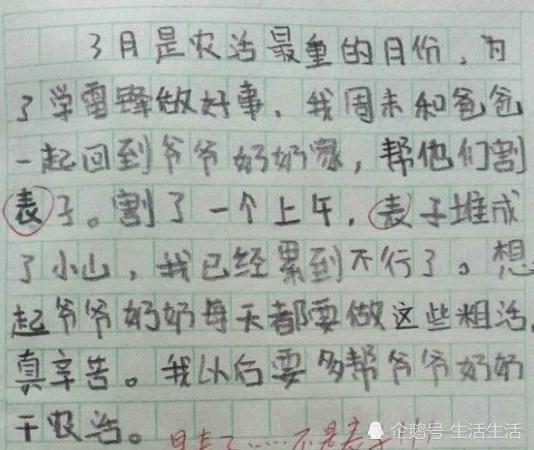 3月是农活最重的月份，为
了学雷锋做好事，我周末和爸爸
一起回到爷爷奶奶家，帮他们割
表子。割了一个上午，表子堆成
了小山，我已经累到不行了。想
起爷爷奶奶每天都要做这些粗活，
真辛苦。我以后要多帮爷爷奶奶
干农活。
是麦子……不是表子
企鹅号 生活生活